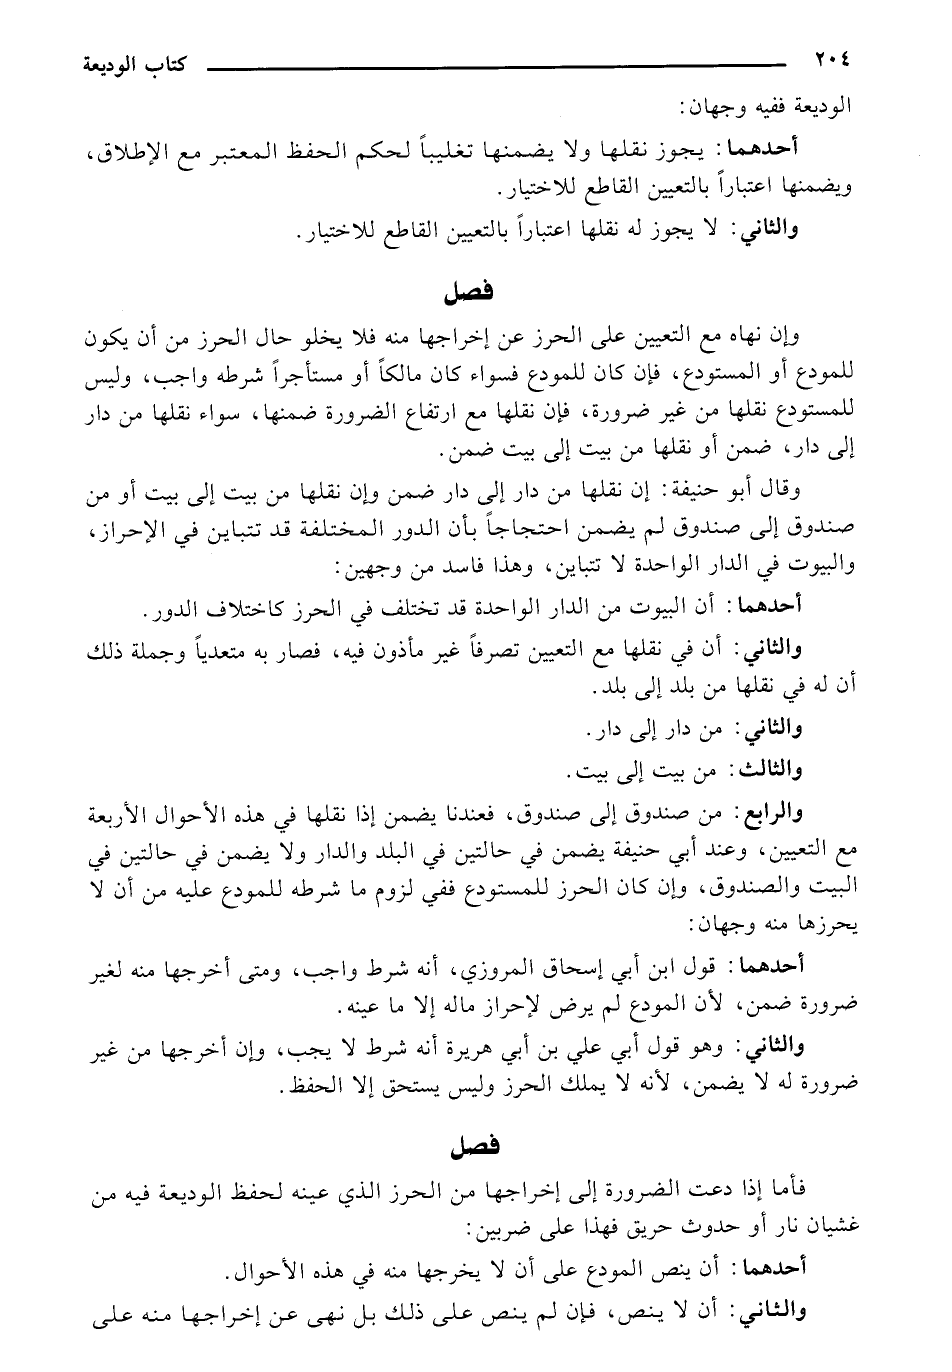 ٢٠٤ كتاب الوديعة
الوديعة ففيه وجهان:
أحدهما: يجوز نقلها ولا يضمنها تغليباً لحكم الحفظ المعتبر مع الإطلاق،
ويضمنها اعتباراً بالتعيين القاطع للاختيار.
والثاني: لا يجوز له نقلها اعتباراً بالتعيين القاطع للاختيار.
فصل
وإن نهاه مع التعيين على الحرز عن إخراجها منه فلا يخلو حال الحرز من أن يكون
للمودع أو المستودع، فإن كان للمودع فسواء كان مالكاً أو مستأجراً شرطه واجب، وليس
للمستودع نقلها من غير ضرورة، فإن نقلها مع ارتفاع الضرورة ضمنها، سواء نقلها من دار
إلى دار، ضمن أو نقلها من بيت إلى بيت ضمن.
وقال أبو حنيفة: إن نقلها من دار إلى دار ضمن وإن نقلها من بيت إلى بيت أو من
صندوق إلى صندوق لم يضمن احتجاجاً بأن الدور المختلفة قد تتباين في الإحراز،
والبيوت في الدار الواحدة لا تتباين، وهذا فاسد من وجهين:
أحدهما: أن البيوت من الدار الواحدة قد تختلف في الحرز كاختلاف الدور.
والثاني: أن في نقلها مع التعيين تصرفاً غير مأذون فيه، فصار به متعدياً وجملة ذلك
أن له في نقلها من بلد إلى بلد.
والثاني: من دار إلى دار.
والثالث: من بيت إلى بيت.
والرابع: من صندوق إلى صندوق، فعندنا يضمن إذا نقلها في هذه الأحوال الأربعة
مع التعيين، وعند أبي حنيفة يضمن في حالتين في البلد والدار ولا يضمن في حالتين في
البيت والصندوق، وإن كان الحرز للمستودع ففي لزوم ما شرطه للمودع عليه من أن لا
يحرزها منه وجهان:
أحدهما: قول ابن أبي إسحاق المروزي، أنه شرط واجب، ومتى أخرجها منه لغير
ضرورة ضمن، لأن المودع لم يرض لإحراز ماله إلا ما عينه.
والثاني: وهو قول أبي علي بن أبي هريرة أنه شرط لا يجب، وإن أخرجها من غير
ضرورة له لا يضمن، لأنه لا يملك الحرز وليس يستحق إلا الحفظ.
فصل
فأما إذا دعت الضرورة إلى إخراجها من الحرز الذي عينه لحفظ الوديعة فيه من
غشيان نار أو حدوث حريق فهذا على ضربين:
أحدهما: أن ينص المودع على أن لا يخرجها منه في هذه الأحوال.
والثاني: أن لا ينص، فإن لم ينص على ذلك بل نهى عن إخراجها منه على